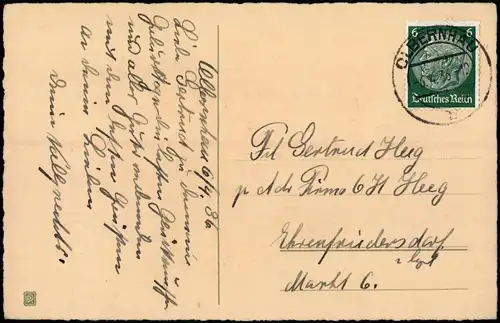 Olbernhau 6/4. 36
Liebe Gertrud zu Deinem
Geburtstage den besten Glückwunsch
und alles Gute
mit den besten Grüßen
an Deine Lieben
Deine
6 6
Deutsches Reich
OLBERNHAU
Frl Gertrud Heeg
p Adr Firma C H Heeg
Ehrenfriedersdorf
i. Erzg.
Markt 6.